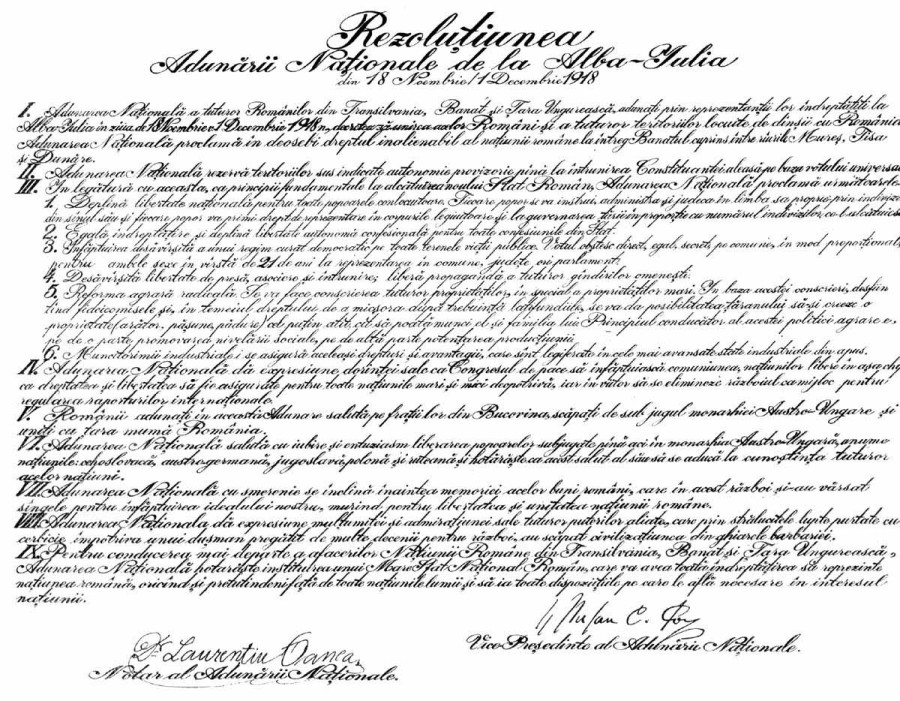 Rezoluțiunea
Adunării Naționale de la Alba-Iulia
din 18 Noembrie/1 Decembrie 1918
I. Adunarea Națională a tuturor Românilor din Transilvania, Banat și Țara Ungurească, adunați prin reprezentanții lor îndreptățiți la
Alba Iulia în ziua de 18 Noembrie/1 Decembrie 1918, decretează unirea acelor Români și a tuturor teritoriilor locuite de dînșii cu România.
Adunarea Națională proclamă îndeosebi dreptul inalienabil al națiunii române la întreg Banatul cuprins între rîurile Mureș, Tisa
și Dunăre.
II. Adunarea Națională rezervă teritoriilor sus indicate autonomie provizorie pînă la întrunirea Constituantei aleasă pe baza votului universal
III. În legătură cu aceasta, ca principii fundamentale la alcătuirea noului Stat Român, Adunarea Națională proclamă următoarele:
1. Deplină libertate națională pentru toate popoarele conlocuitoare. Fiecare popor se va instrui, administra și judeca în limba sa proprie prin indivizi
din sînul său și fiecare popor va primi drept de reprezentare în corpurile legiuitoare și la guvernarea țării în proporție cu numărul indivizilor ce-l alcătuiesc
2. Egală îndreptățire și deplină libertate autonomă confesională pentru toate confesiunile din Stat.
3. Înfăptuirea desăvîrșită a unui regim curat democratic pe toate terenele vieții publice. Votul obștesc, direct, egal, secret, pe comune, în mod proporțional,
pentru ambele sexe în vîrstă de 21 de ani la reprezentarea în comune, județe ori parlament.
4. Desăvîrșită libertate de presă, asociere și întrunire; liberă propagandă a tuturor gîndirilor omenești.
5. Reforma agrară radicală. Se va face conscrierea tuturor proprietăților, în special a proprietăților mari. În baza acestei conscrieri, desfiin
țînd fideicomisele și, în temeiul dreptului de a micșora după trebuință latifundiile, se va da posibilitatea țăranului să-și creeze o
proprietate (arător, pășune, pădure) cel puțin atît, cît să poată munci el și familia lui. Principiul conducător al acestei politici agrare e,
pe de o parte promovarea nivelării sociale, pe de altă parte potențarea producțiunii.
6. Muncitorimii industriale i se asigură aceleași drepturi și avantagii, care sînt legiferate în cele mai avansate state industriale din apus.
IV. Adunarea Națională dă expresiune dorinței sale ca Congresul de pace să înfăptuiască comuniunea națiunilor libere în așa chip
ca dreptatea și libertatea să fie asigurate pentru toate națiunile mari și mici deopotrivă, iar în viitor să se elimineze războiul ca mijloc pentru
regularea raporturilor internaționale.
V. Românii adunați în această Adunare salută pe frații lor din Bucovina, scăpați de sub jugul monarhiei Austro-Ungare și
uniți cu țara mumă România.
VI. Adunarea Națională salută cu iubire și entuziasm liberarea popoarelor subjugate pînă aci în monarhia Austro-Ungară, anume
națiunile: cehoslovacă, austrogermană, jugoslavă, polonă și ruteană și hotărăște ca acest salut al său să se aducă la cunoștința tuturor
acelor națiuni.
VII. Adunarea Națională cu smerenie se închină înaintea memoriei acelor buni români, care în acest război și-au vărsat
sîngele pentru înfăptuirea idealului nostru, murind pentru libertatea și unitatea națiunii române.
VIII. Adunarea Naționala dă expresiune mulțumitei și admirațiunei sale tuturor puterilor aliate, care prin strălucitele lupte purtate cu
cerbicie împotriva unui dușman pregătit de multe decenii pentru război, au scăpat civilizațiunea din ghiarele barbariei.
IX. Pentru conducerea mai departe a afacerilor Națiunii Române din Transilvania, Banat și Țara Ungurească,
Adunarea Națională hotărăște instituirea unui Mare Sfat Național Român, care va avea toată îndreptățirea să reprezinte
națiunea română, oricînd și pretutindeni față de toate națiunile lumii și să ia toate dispozițiile pe care le află necesare în interesul
națiunii.
Dr. Laurențiu Oanea
Notar al Adunării Naționale.
Ștefan C. Pop
Vice Președinte al Adunării Naționale.